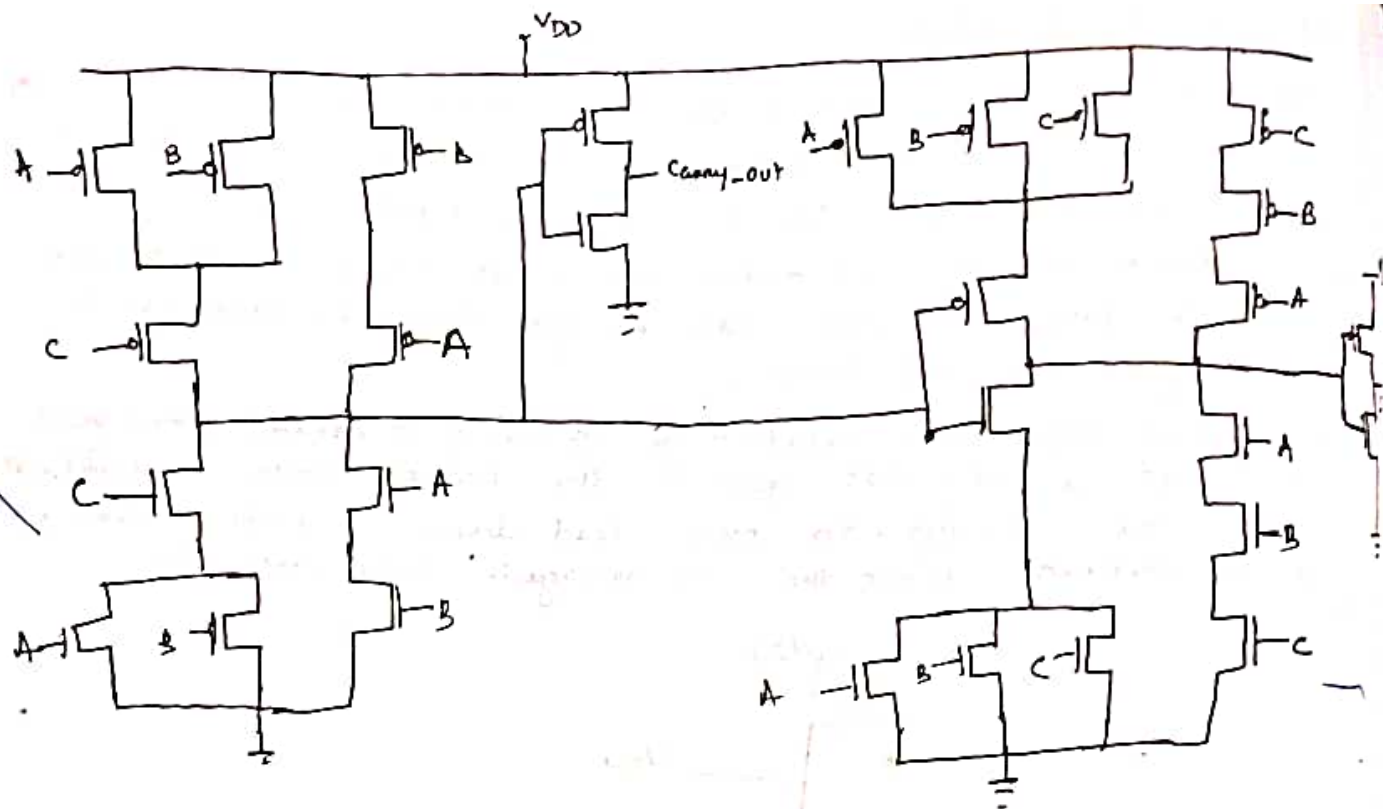 VDD
A
B
B
Carry_out
A
B
C
C
B
A
C
A
C
A
A
B
A
B
B
A
B
C
C